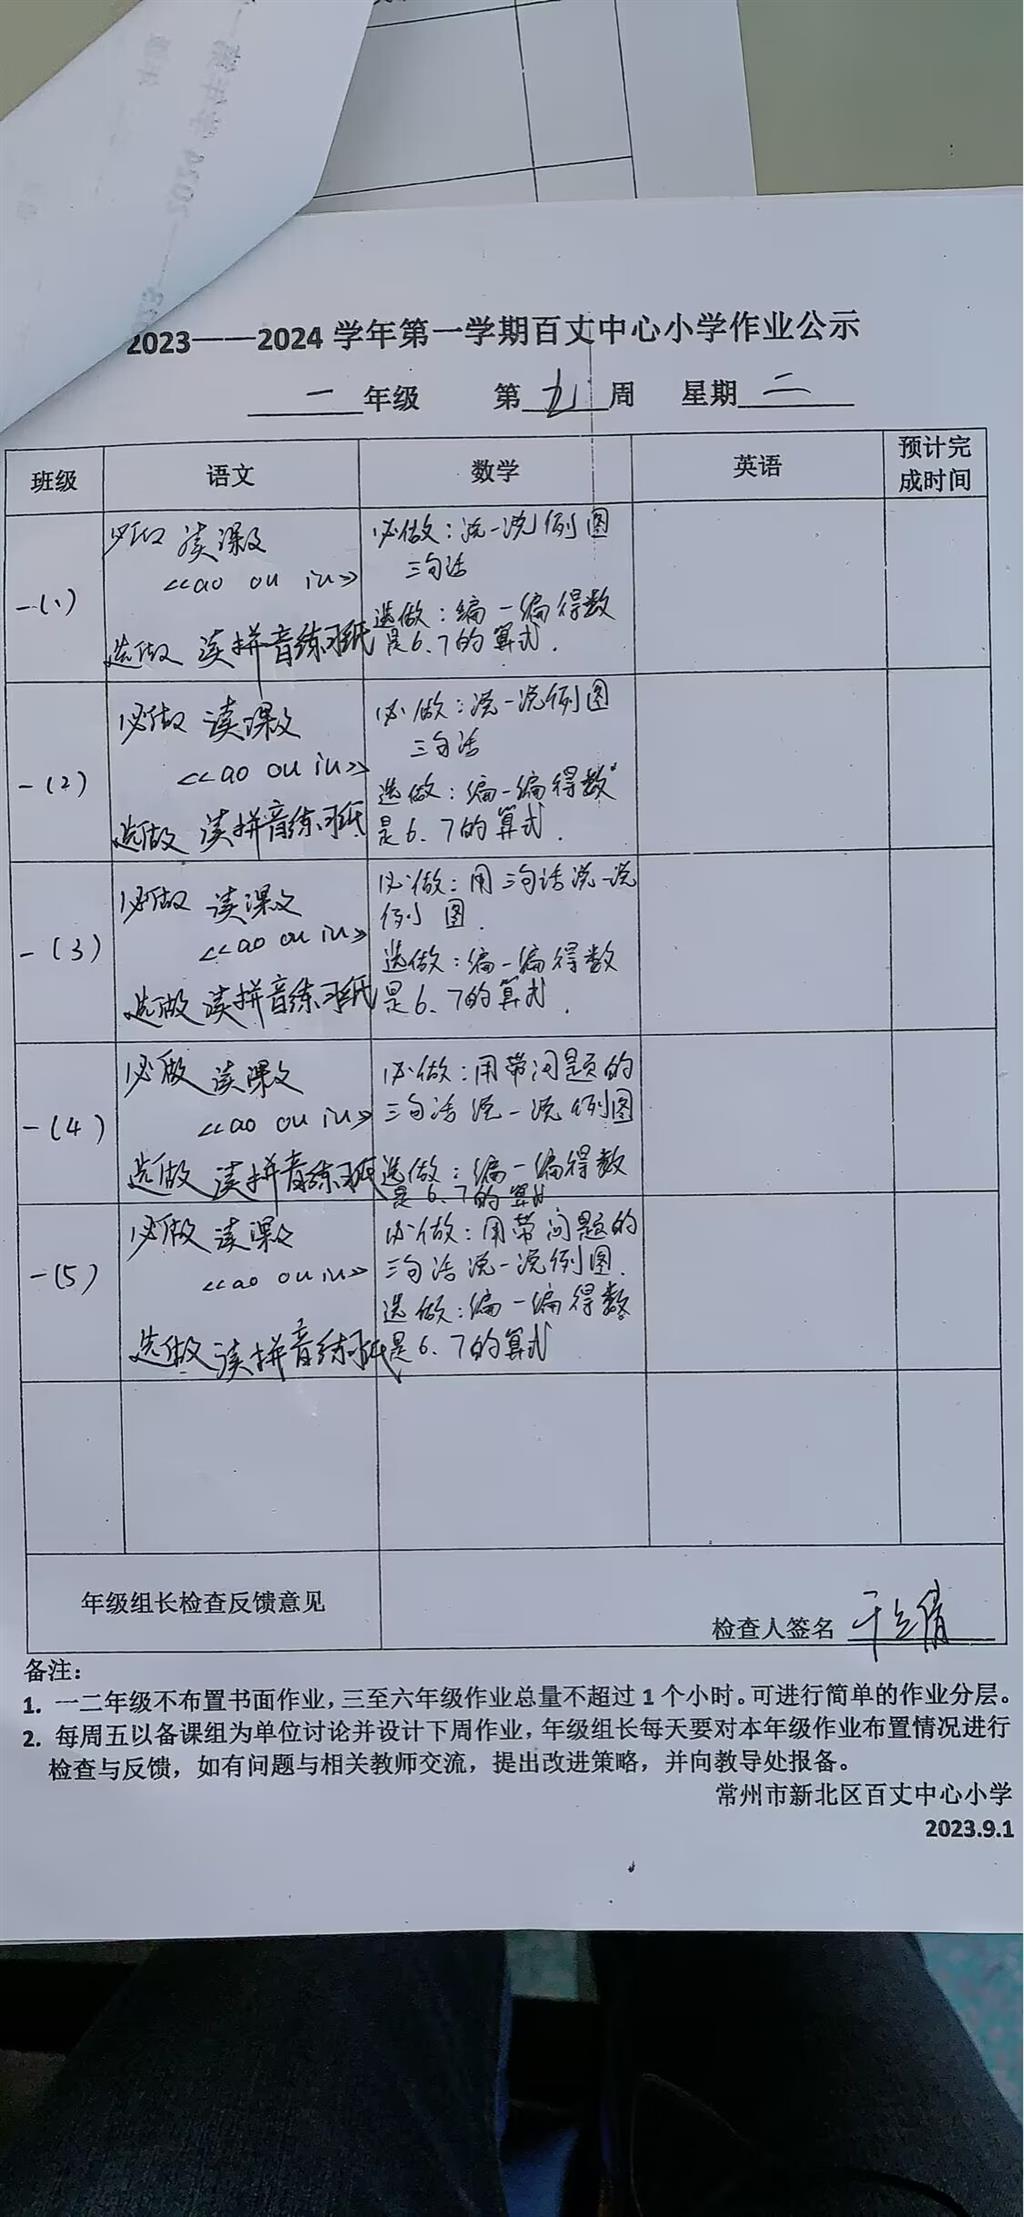 2023——2024 学年第一学期百丈中心小学作业公示
一 年级 第 九 周 星期 二
班级 语文 数学 英语 预计完成时间
一(1)
必做 读课文
《ao ou iu》
选做 读拼音练习纸
必做：说一说例图
三句话
选做：编一编得数
是6、7的算式.
一(2)
必做 读课文
《ao ou iu》
选做 读拼音练习纸
必做：说一说例图
三句话
选做：编一编得数
是6、7的算式.
一(3)
必做 读课文
《ao ou iu》
选做 读拼音练习纸
必做：用三句话说一说
例图.
选做：编一编得数
是6、7的算式.
一(4)
必做 读课文
《ao ou iu》
选做 读拼音练习纸
必做：用带问题的
三句话说一说例图
选做：编一编得数
是6、7的算式
一(5)
必做 读课文
《ao ou iu》
选做 读拼音练习纸
必做：用带问题的
三句话说一说例图.
选做：编一编得数
是6、7的算式
年级组长检查反馈意见
检查人签名
备注：
1. 一二年级不布置书面作业，三至六年级作业总量不超过 1 个小时。可进行简单的作业分层。
2. 每周五以备课组为单位讨论并设计下周作业，年级组长每天要对本年级作业布置情况进行
检查与反馈，如有问题与相关教师交流，提出改进策略，并向教导处报备。
常州市新北区百丈中心小学
2023.9.1